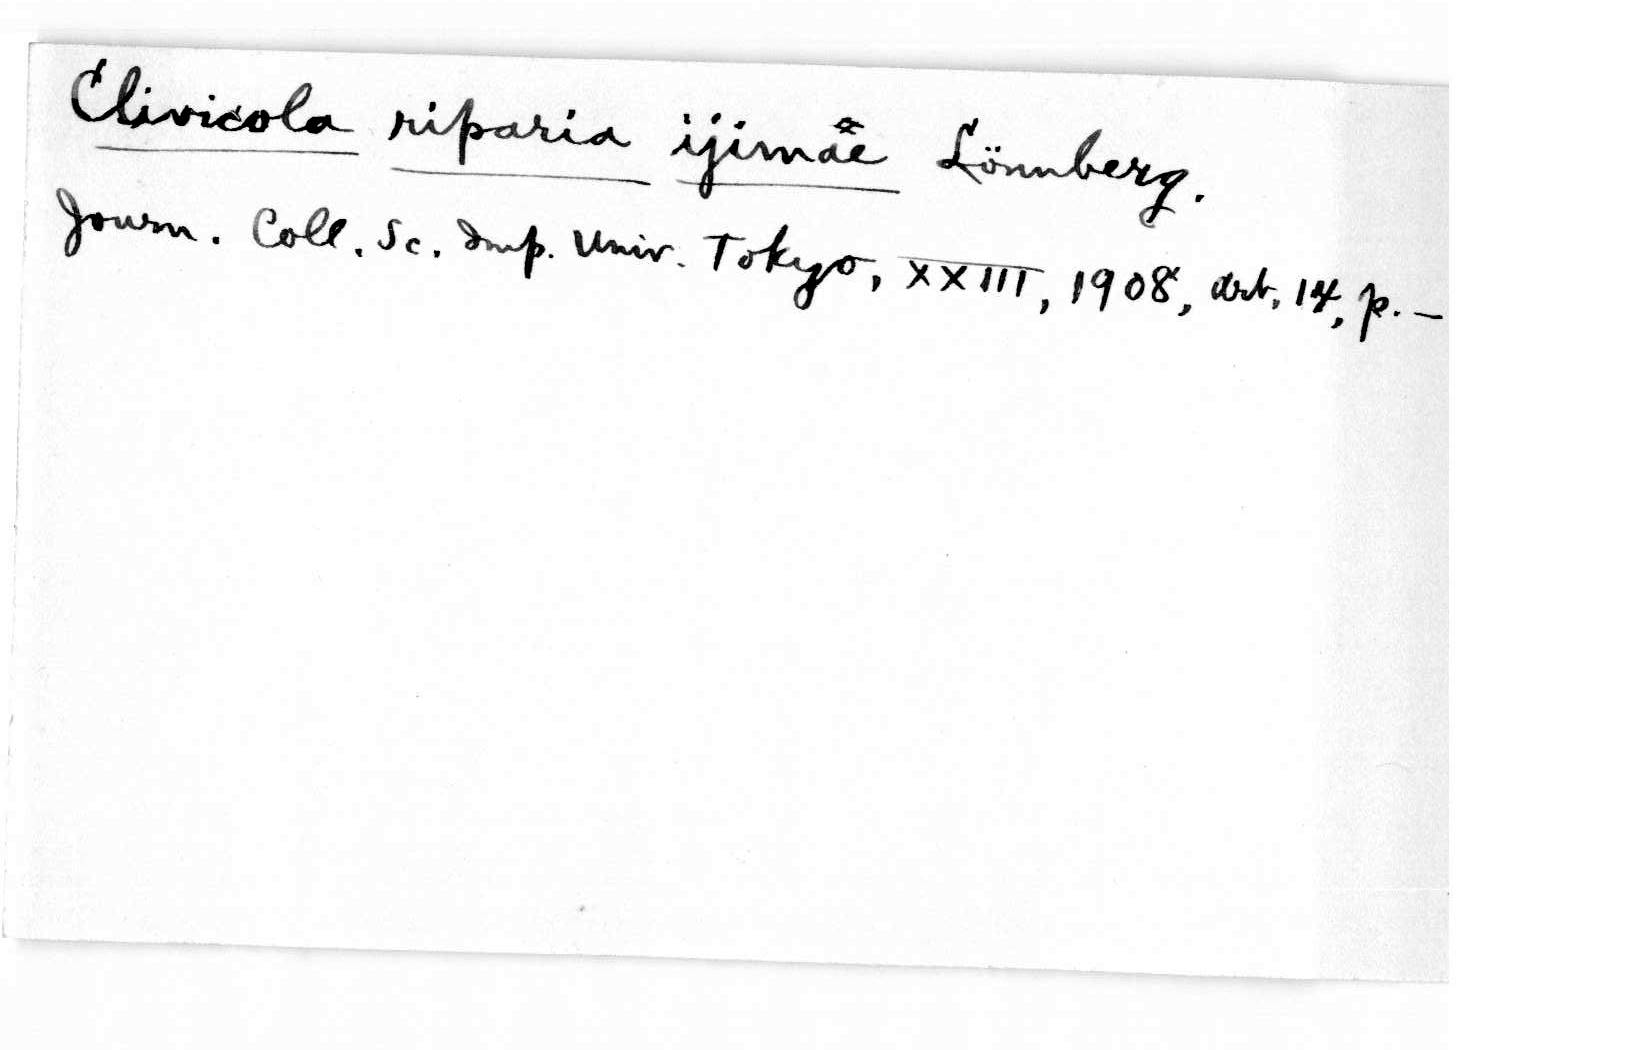 Clivicola riparia ijimæ Lönnberg.
Journ. Coll. Sc. Imp. Univ. Tokyo, XXIII, 1908, art. 14, p. —